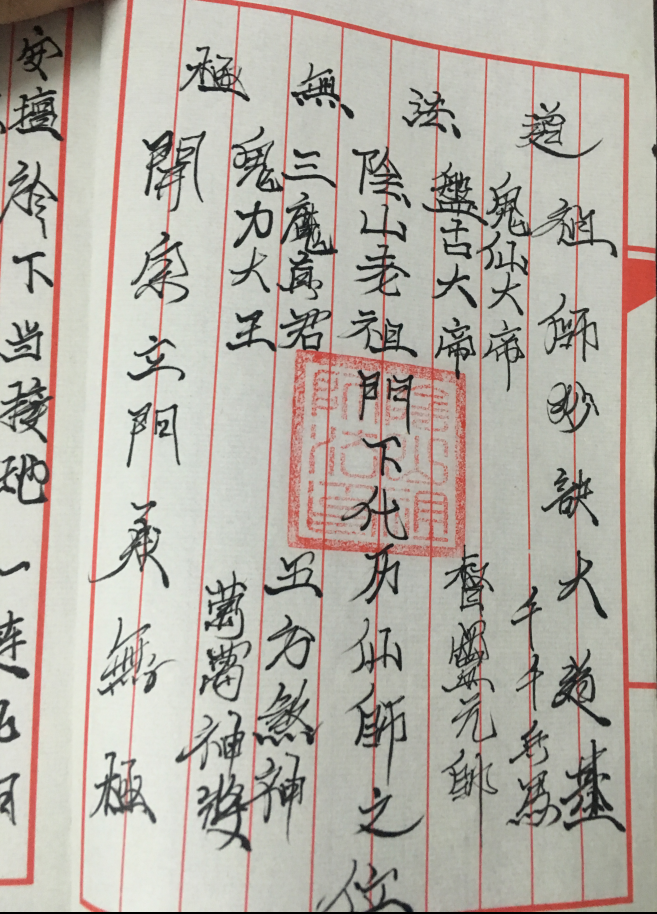 道法無極
祖師妙訣大道基
鬼仙大帝
千千兵馬
盤古大帝
元帥
陰山老祖門下化歷仙師之位
三魔真君
五方煞神
鬼力大王
萬萬神將
開宗立門承無極
安壇於下当接地
一連